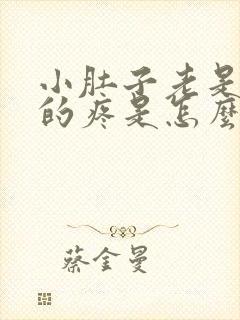 小肚子老是
的疼是怎麼
蔡金曼